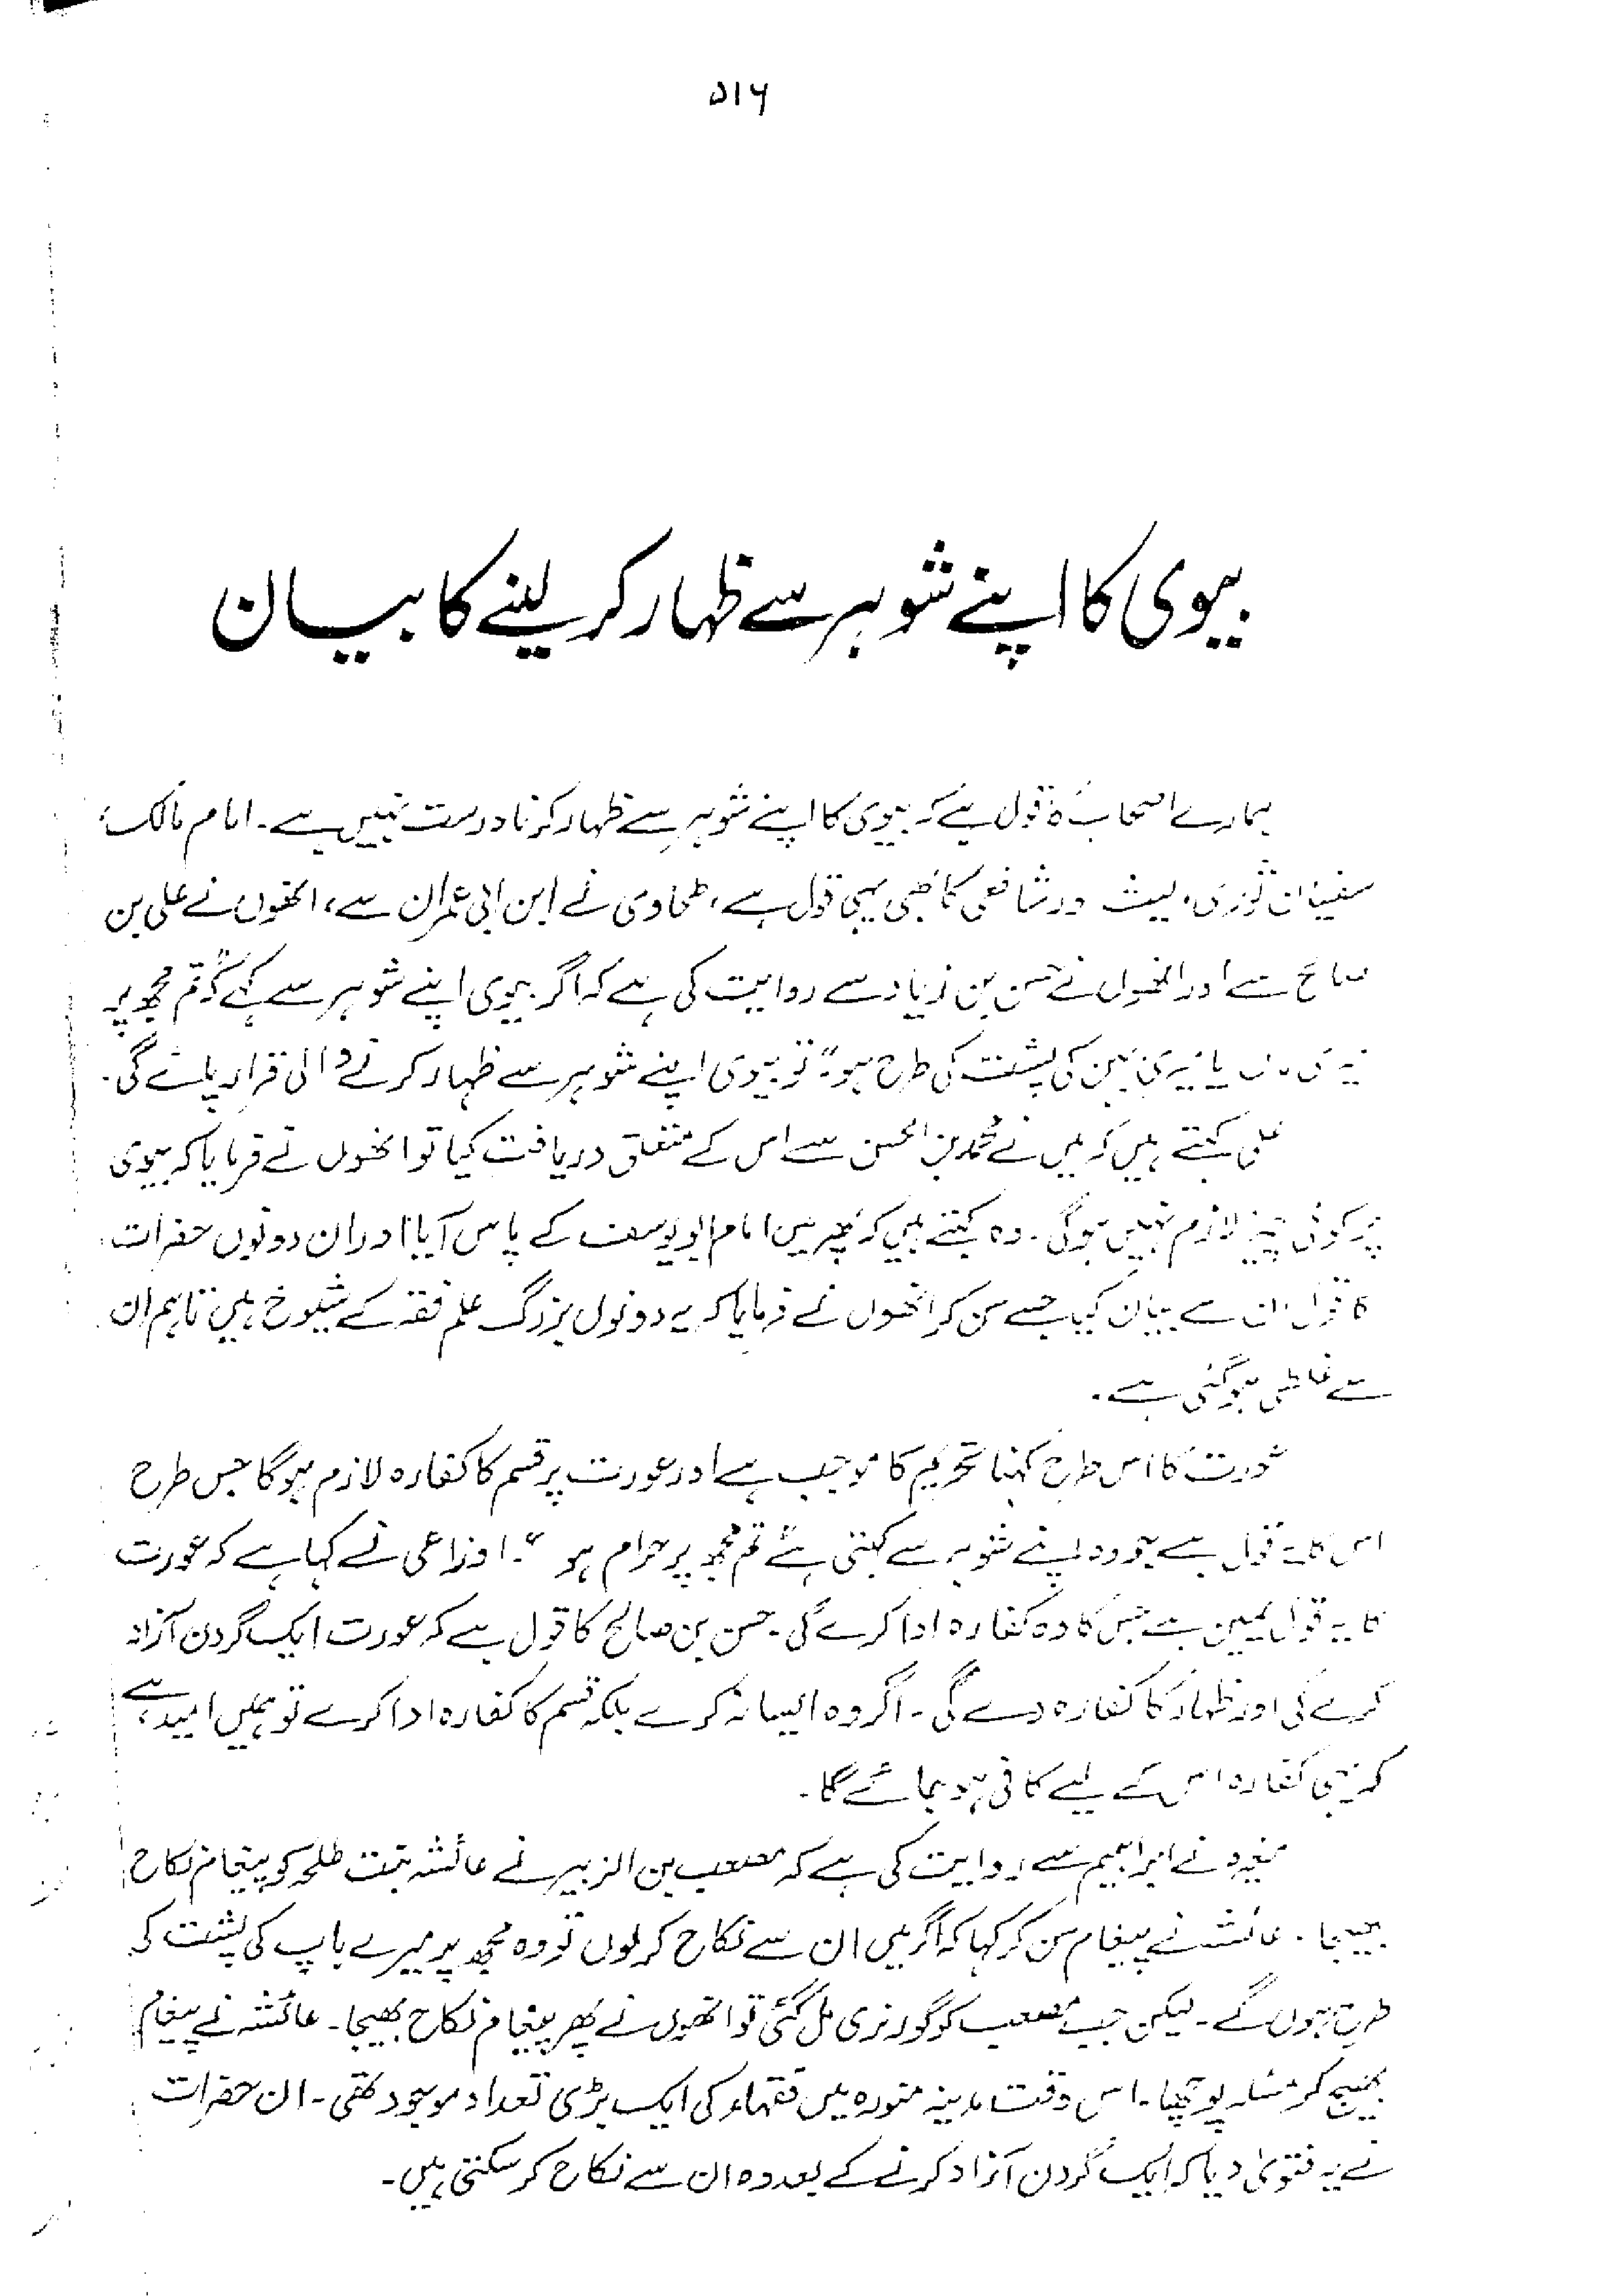 ۵۱۶
بیوی کا اپنے شوہر سے ظہار کر لینے کا بیان
ہمارے اصحاب کا قول ہے کہ بیوی کا اپنے شوہر سے ظہار کرنا درست نہیں ہے۔ امام مالک،
سفیان ثوری، لیث اور شافعی کا بھی یہی قول ہے، طحاوی نے ابن ابی عمران سے، انھوں نے علی بن
صالح سے اور انھوں نے حسن بن زیاد سے روایت کی ہے کہ اگر بیوی اپنے شوہر سے کہے کہ "تم مجھ پر
میری ماں یا میری بہن کی پشت کی طرح ہو" تو بیوی اپنے شوہر سے ظہار کرنے والی قرار پائے گی۔
علی کہتے ہیں کہ میں نے محمد بن الحسن سے اس کے متعلق دریافت کیا تو انھوں نے فرمایا کہ بیوی
پر کوئی چیز لازم نہیں ہوگی۔ وہ کہتے ہیں کہ پھر میں امام ابو یوسف کے پاس آیا اور ان دونوں حضرات
کا قول ان سے بیان کیا جسے سن کر انھوں نے فرمایا کہ یہ دونوں بزرگ علم فقہ کے شیوخ ہیں تاہم ان
سے غلطی ہوگئی ہے۔
عورت کا اس طرح کہنا تحریم کا موجب ہے اور عورت پر قسم کا کفارہ لازم ہوگا جس طرح
اس کا یہ قول ہے جو وہ اپنے شوہر سے کہتی ہے "تم مجھ پر حرام ہو"۔ اوزاعی نے کہا ہے کہ عورت
کا یہ قول یمین ہے جس کا وہ کفارہ ادا کرے گی۔ حسن بن صالح کا قول ہے کہ عورت ایک گردن آزاد
کرے گی اور ظہار کا کفارہ دے گی۔ اگر وہ ایسا نہ کرے بلکہ قسم کا کفارہ ادا کرے تو ہمیں امید ہے
کہ یہی کفارہ اس کے لیے کافی ہو جائے گا۔
مغیرہ نے ابراہیم سے روایت کی ہے کہ مصعب بن الزبیر نے عائشہ بنت طلحہ کو پیغام نکاح
بھیجا۔ عائشہ نے پیغام سن کر کہا کہ اگر میں ان سے نکاح کر لوں تو وہ مجھ پر میرے باپ کی پشت کی
طرح ہوں گے۔ لیکن جب مصعب کو گورنری مل گئی تو انھوں نے پھر پیغام نکاح بھیجا۔ عائشہ نے پیغام
بھیج کر مسئلہ پوچھا۔ اس وقت مدینہ منورہ میں فقہاء کی ایک بڑی تعداد موجود تھی۔ ان حضرات
نے یہ فتویٰ دیا کہ ایک گردن آزاد کرنے کے بعد وہ ان سے نکاح کر سکتی ہیں۔